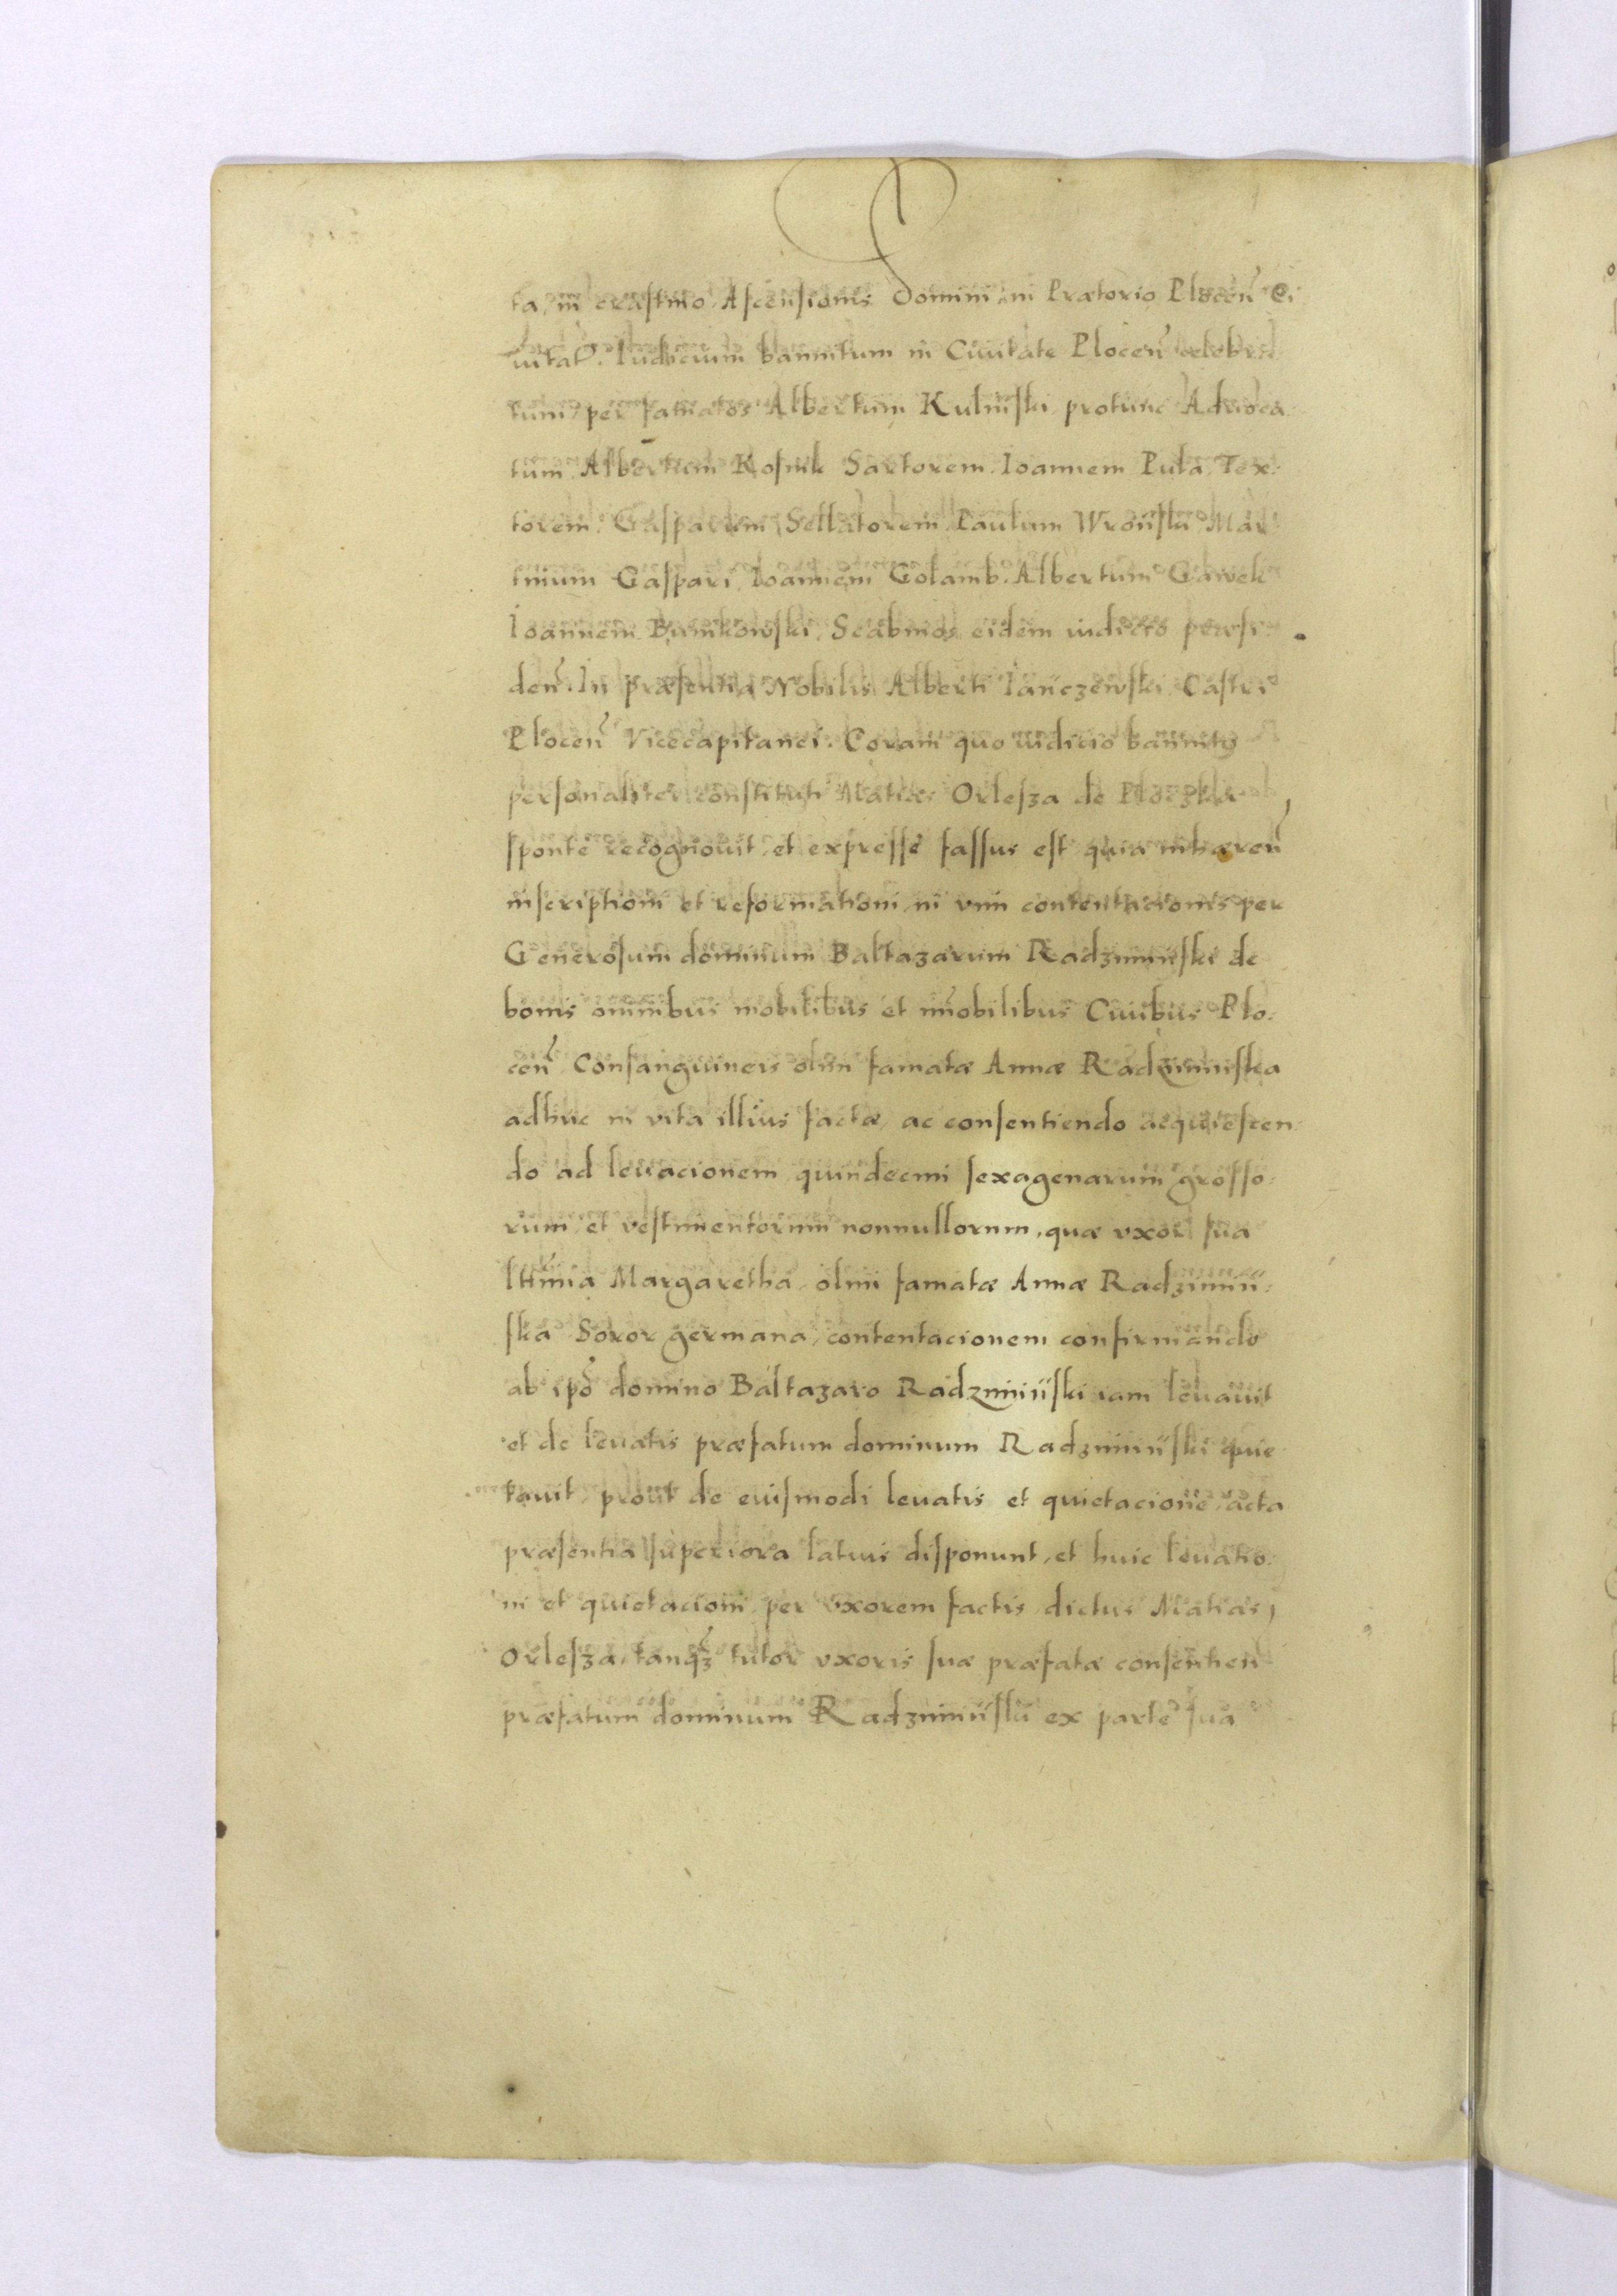 ta, in crastino Ascensionis Domini in Prætorio Plocen̄ Ci
uitat̄. Iudicium bannitum in Ciuitate Plocen̄ celebra
tum, per famatos Albertum Kulinski protunc Aduoca
tum. Albertum Kosmk Sartorem. Ioannem Puta Tex:
torem. Gasparem Sellatorem Paulum Wronsku Mar
tinum Gaspari, Ioannem Golamb. Albertum Gawek
Ioannem Bunikowski. Scabinos eidem iudicio præsi
den̄. In præsentia Nobilis Alberti Ianczewski Castri
Plocen̄ Vicecapitanei. Coram quo iudicio bannito
personaliter constituti Matias Orlesza de Ploczka
sponte recognouit, et expresse fassus est quia inhæren̄
inscriptioni et reformationi, in vim contentacionis per
Generosum dominum Baltazarum Radziminski de
bonis omnibus mobilibus et im̄obilibus Ciuibus Plo:
cen̄ Consanguineis olim famatæ Annæ Radziminska
adhuc in vita illius factæ, ac consentiendo acquiescen
do ad leuacionem quindecim sexagenarum grosso:
rum, et vestimentorum nonnullorum, quæ vxor sua
ltt̄ima Margaretha, olim famatæ Annæ Radzimin:
ska Soror germana, contentacionem confirmando
ab ip̄o domino Baltazaro Radziminski iam leuauit
et de leuatis præfatum dominum Radziminski quie
tauit, prout de euismodi leuatis et quietacione, acta
præsentia superiora latius disponunt, et huic leuatio:
ni et quietacioni per vxorem factis, dictus Matias
Orlesza, tanq̄ꝫ tutor vxoris suæ præfatæ consentien
præfatum dominum Radziminsku ex parte sua